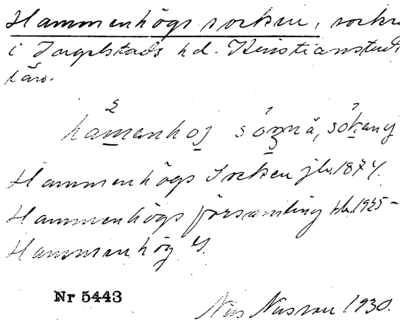 Hammenhögs socken, socken
i Ingelstads hd. Kristianstads
län.
hamenhoj
Hammenhögs Socken jb 1874.
Hammenhögs församling hb 1925-
Hammenhög
Nr 5443
Nils 1930.